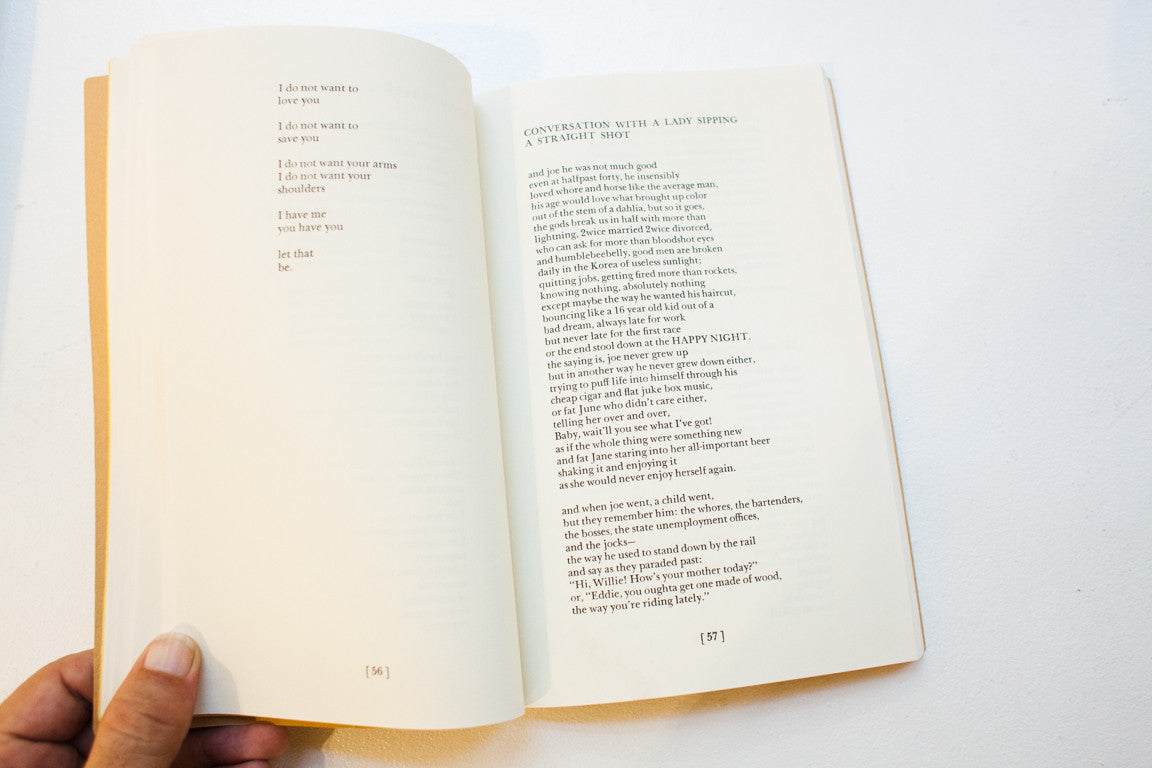 I do not want to
love you
I do not want to
save you
I do not want your arms
I do not want your
shoulders
I have me
you have you
let that
be.
[ 56 ]
CONVERSATION WITH A LADY SIPPING
A STRAIGHT SHOT
and joe he was not much good
even at halfpast forty, he insensibly
loved whore and horse like the average man,
his age would love what brought up color
out of the stem of a dahlia, but so it goes,
the gods break us in half with more than
lightning, 2wice married 2wice divorced,
who can ask for more than bloodshot eyes
and bumblebeebelly, good men are broken
daily in the Korea of useless sunlight;
quitting jobs, getting fired more than rockets,
knowing nothing, absolutely nothing
except maybe the way he wanted his haircut,
bouncing like a 16 year old kid out of a
bad dream, always late for work
but never late for the first race
or the end stool down at the HAPPY NIGHT.
the saying is, joe never grew up
but in another way he never grew down either,
trying to puff life into himself through his
cheap cigar and flat juke box music,
or fat June who didn't care either,
telling her over and over,
Baby, wait'll you see what I've got!
as if the whole thing were something new
and fat Jane staring into her all-important beer
shaking it and enjoying it
as she would never enjoy herself again.
and when joe went, a child went,
but they remember him: the whores, the bartenders,
the bosses, the state unemployment offices,
and the jocks—
the way he used to stand down by the rail
and say as they paraded past:
"Hi, Willie! How's your mother today?"
or, "Eddie, you oughta get one made of wood,
the way you're riding lately."
[ 57 ]